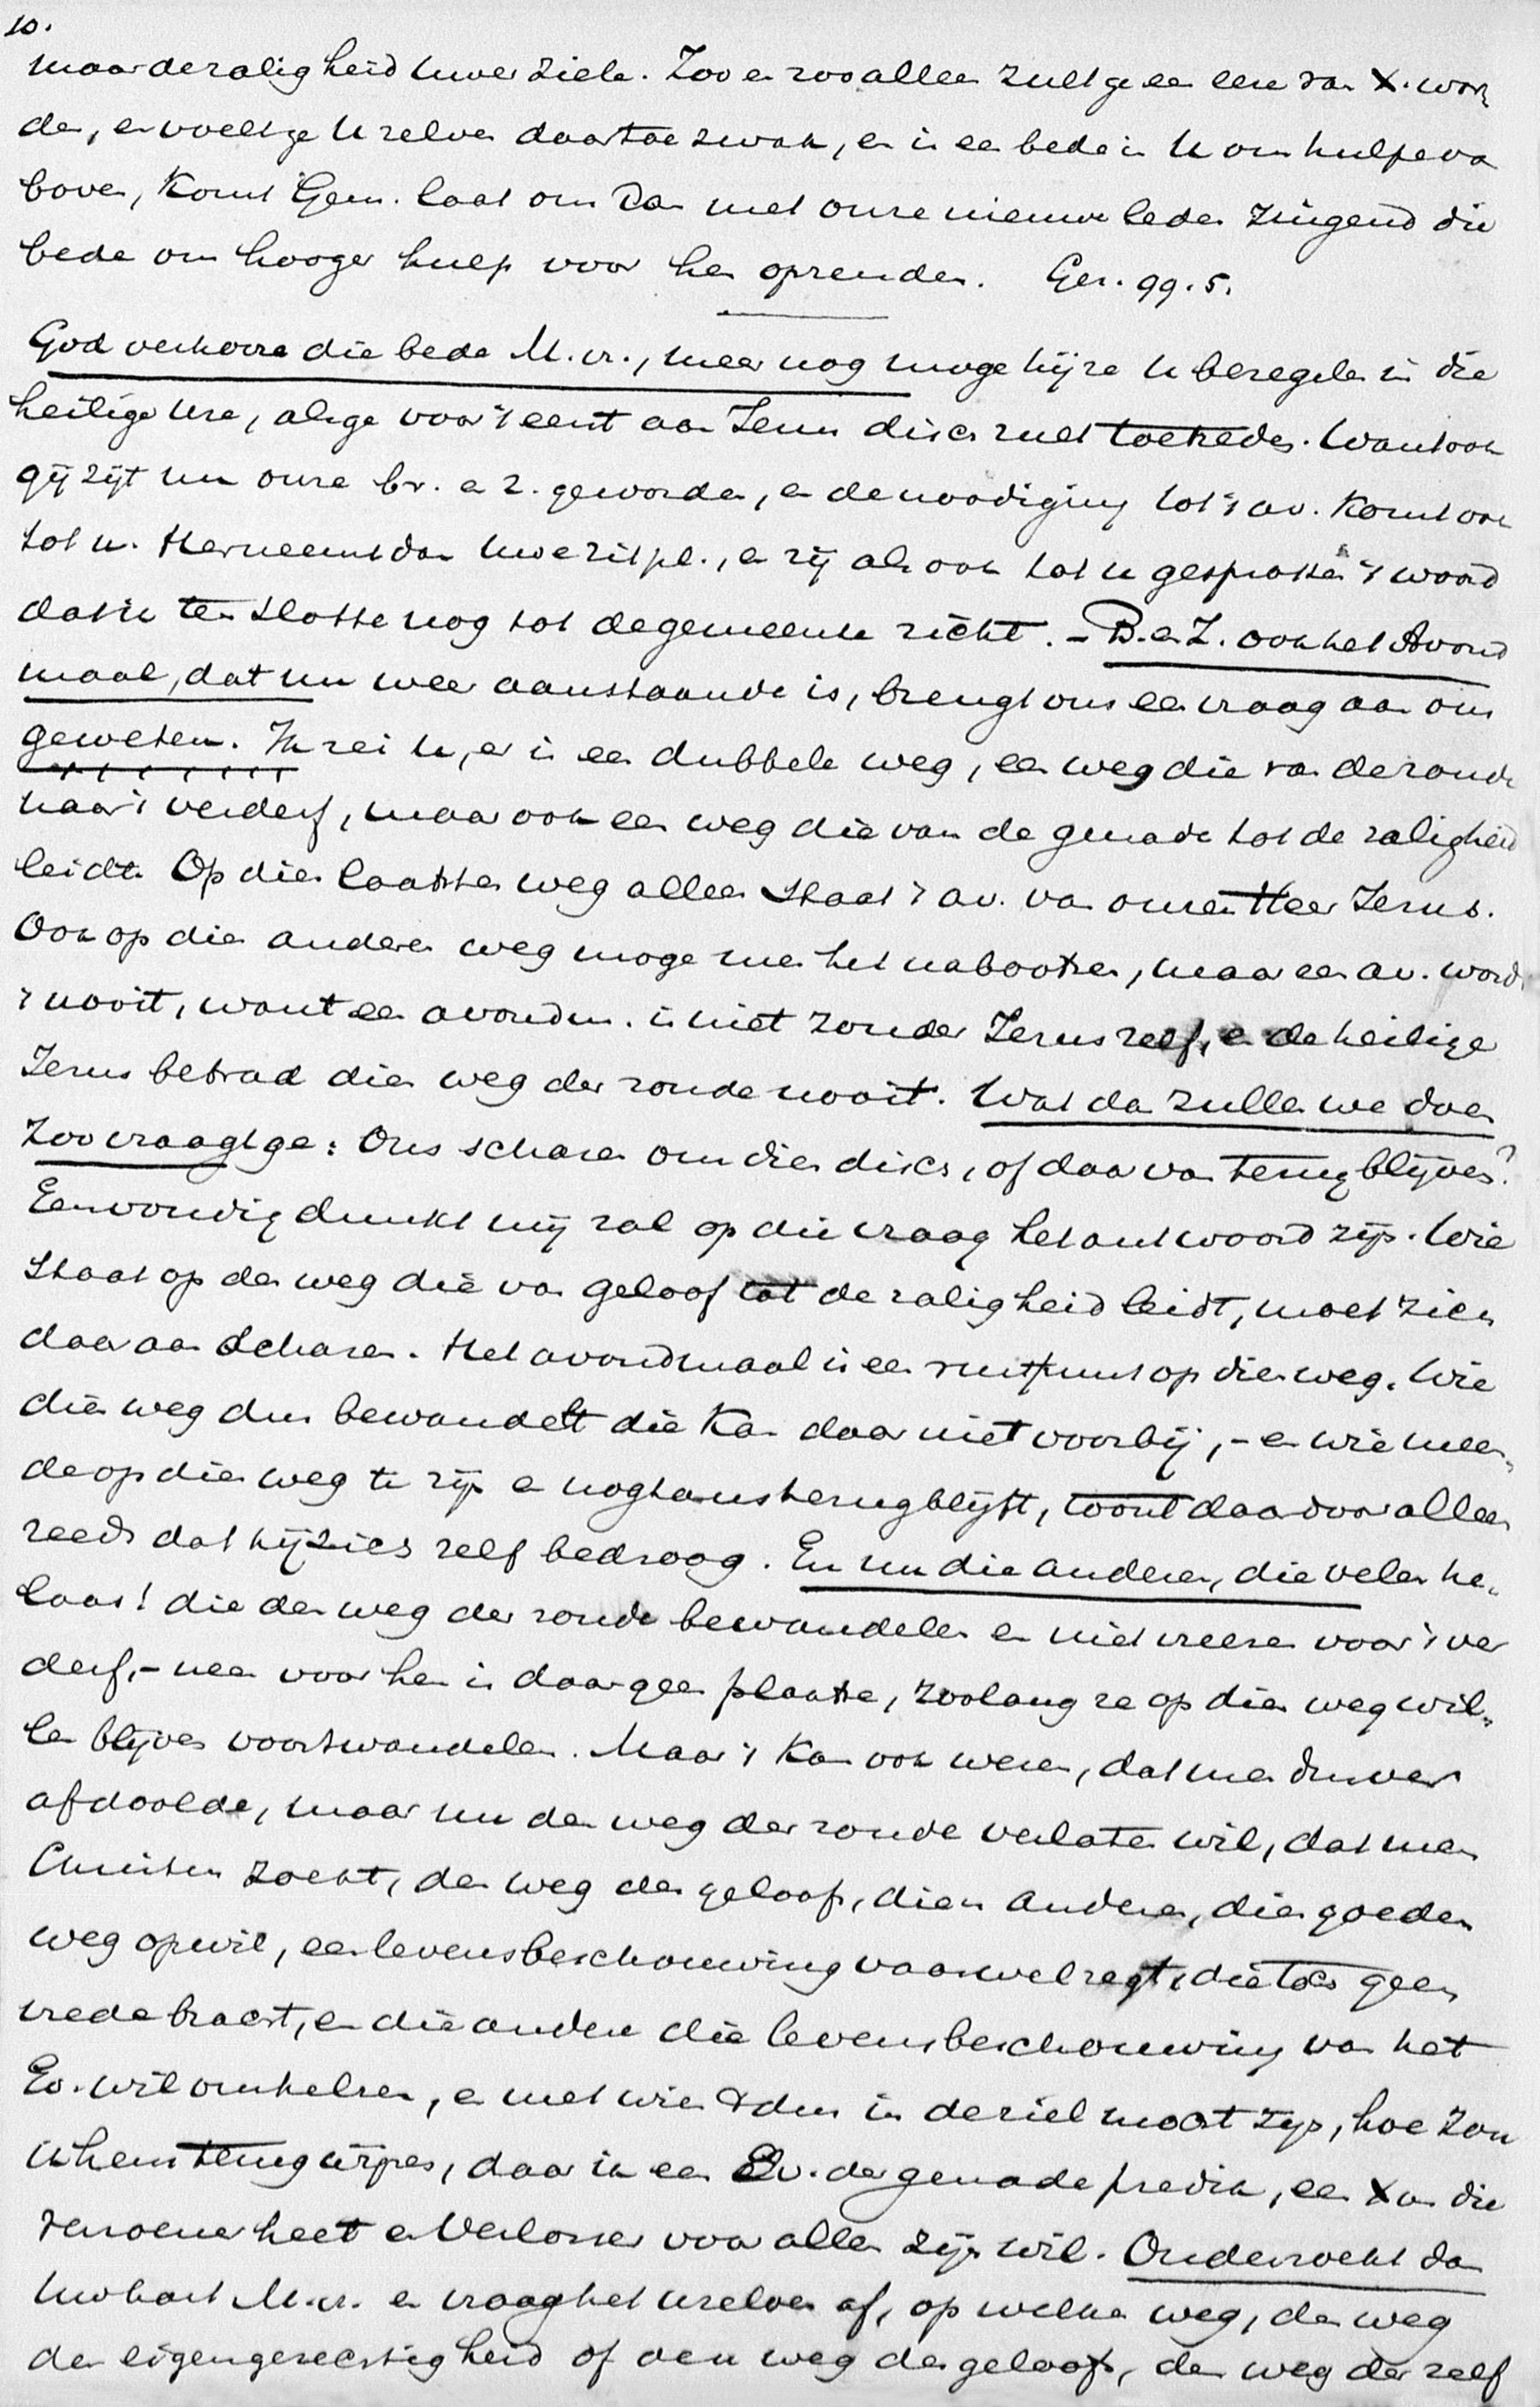 10.
maar de zaligheid Uwer ziele. Zoo en zoo alleen zult ge een eere van X. wor„
den, en voelt ge U zelven daartoe zwak, en is een bede in U om hulpe van
boven, Komt Gem. laat ons dan met onze nieuwe leden zingend die
bede om hooger hulp voor hen opzenden. Gez. 99.5.
God verhoore die bede M.vr., meer nog moge hij ze U bezegelen in die
heilige ure, als ge voor 't eerst aan Jezus' disch zult toetreden. Want ook
gij zijt nu onze br. en z. geworden, en de noodiging tot 't av. komt ook
tot u. Herneemt dan Uwe zitpl., en zij als ook tot u gesproken 't woord
dat ik ten slotte nog tot de gemeente richt. – B. en Z. ook het Avond
maal, dat nu weer aanstaande is, brengt ons een vraag aan ons
geweten. Ik zei U, er is een dubbele weg, een weg die van de zonde
naar 't verderf, maar ook een weg die van de genade tot de zaligheid
leidt. Op dien laatsten weg alleen staat 't av. van onzen Heer Jezus.
Ook op dien anderen weg moge men het nabootsen, maar een av. wordt
't nooit, want een avondm. is niet zonder Jezus zelf, en de heilige
Jezus betrad dien weg der zonde nooit. Wat dan zullen we doen
zoo vraagt ge: Ons scharen om dien disch, of daarvan terugblijven?
Eenvoudig dunkt mij zal op die vraag het antwoord zijn. Wie
staat op den weg die van geloof tot de zaligheid leidt, moet zich
daaraan scharen. Het avondmaal is een rustpunt op dien weg. Wie
dien weg dus bewandelt die kan daar niet voorbij, – en wie meen„
de op dien weg te zijn en nogtans terugblijft, toont daardoor alleen
reeds dat hij zich zelf bedroog. En nu die anderen, die velen he„
laas! die den weg der zonde bewandelen en niet vreezen voor 't ver
derf, – neen voor hen is daar geen plaatse, zoolang ze op dien weg wil„
len blijven voortwandelen. Maar 't kan ook wezen, dat men dusver
afdoolde, maar nu den weg der zonde verlaten wil, dat men
Christus zoekt, den weg des geloofs, dien anderen, dien goeden
weg op wil, een levensbeschouwing vaarwel zegt, die toch geen
vrede bracht, en die andere die levensbeschouwing van het
Ev. wil omhelzen, en met wien 't dus in de ziel mocht zijn, hoe zou
ik hem terugwijzen, daar ik een Ev. der genade predik, een X an die
verzoener heet en Verlosser voor allen zijn wil. Onderzoekt dan
Uw hart M.vr. en vraag het U zelven af, op welken weg, den weg
der eigengerechtigheid of den weg des geloofs, den weg der zelf